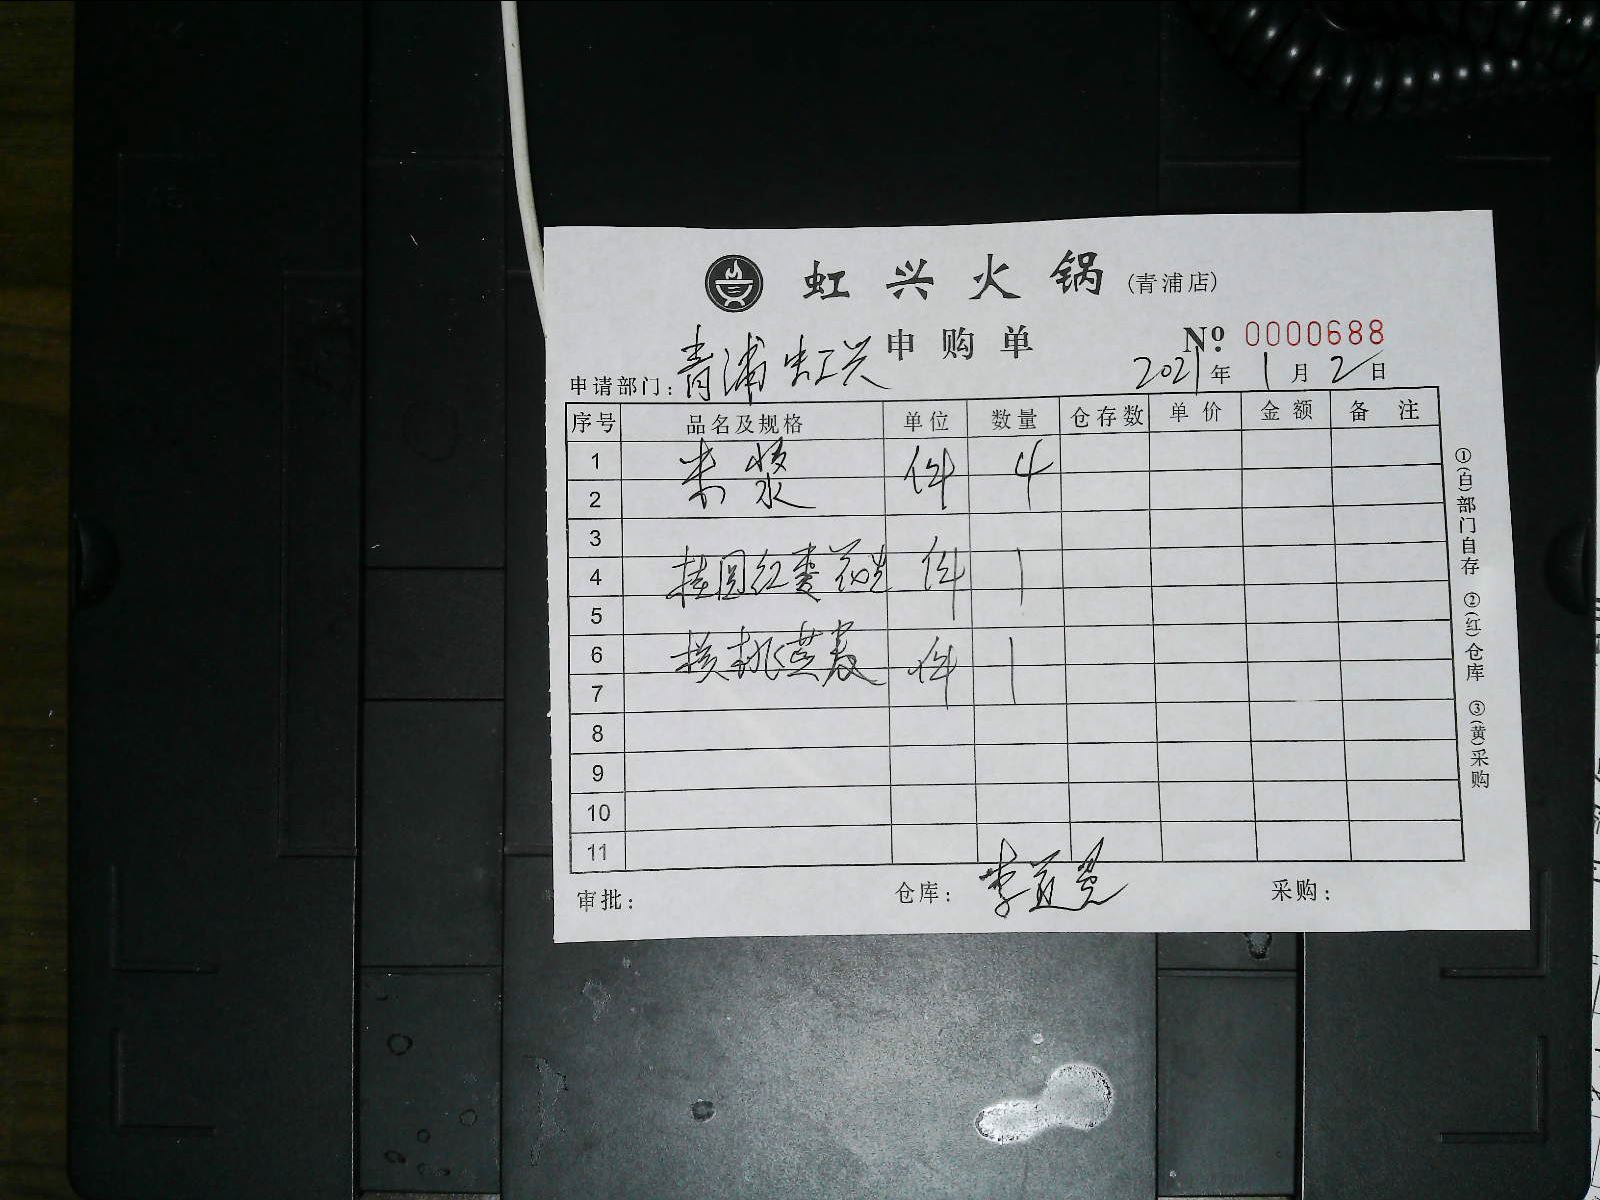 虹兴火锅(青浦店)
申购单 № 0000688
申请部门: 青浦虹兴 2021年1月2日
序号 品名及规格 单位 数量 仓存数 单价 金额 备注
1 米浆 件 4
2
3
4 桂圆红枣 件 1
5
6 核桃燕麦 件 1
7
8
9
10
11
审批: 仓库: 李 采购:
①(白)部门自存 ②(红)仓库 ③(黄)采购